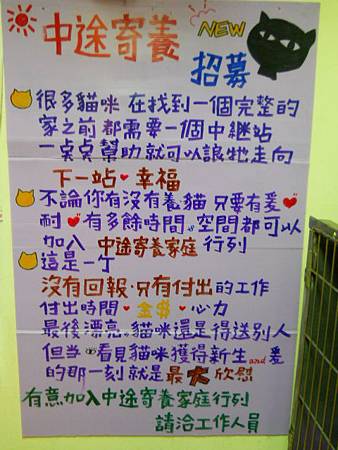 中途寄養
NEW
招募
很多貓咪 在找到一個完整的
家之前 都需要一個中繼站
一点点幫助就可以讓牠走向
下一站❤幸福
不論你有沒有養貓 只要有爱❤
耐❤有多餘時間。空間都可以
加入 中途寄養家庭 行列
這是一丁
沒有回報·只有付出的工作
付出時間❤金$❤心力
最後漂亮。貓咪還是得送別人
但当 看見貓咪獲得新生and 羞
的那一刻就是 最大 欣慰
有意加入中途寄養家庭行列
請洽工作人員